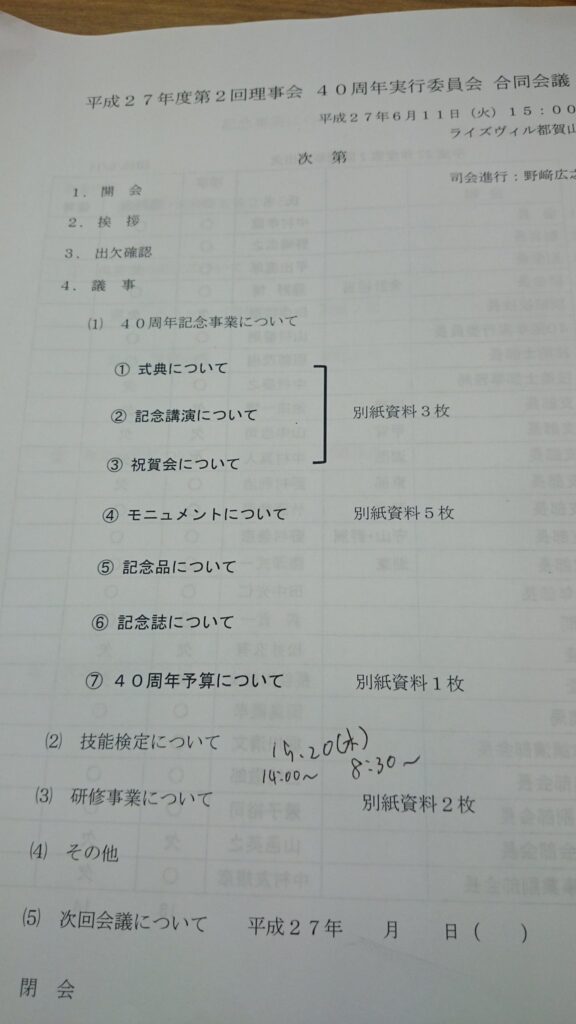 平成２７年度第２回理事会 ４０周年実行委員会 合同会議
平成２７年６月１１日（火）１５：００
ライズヴィル都賀山
次 第
司会進行：野﨑広之
１．開 会
２．挨 拶
３．出欠確認
４．議 事
⑴ ４０周年記念事業について
① 式典について
② 記念講演について 別紙資料３枚
③ 祝賀会について
④ モニュメントについて 別紙資料５枚
⑤ 記念品について
⑥ 記念誌について
⑦ ４０周年予算について 別紙資料１枚
⑵ 技能検定について
14:00〜 8:30〜
⑶ 研修事業について 別紙資料２枚
⑷ その他
⑸ 次回会議について 平成２７年 月 日（ ）
閉 会